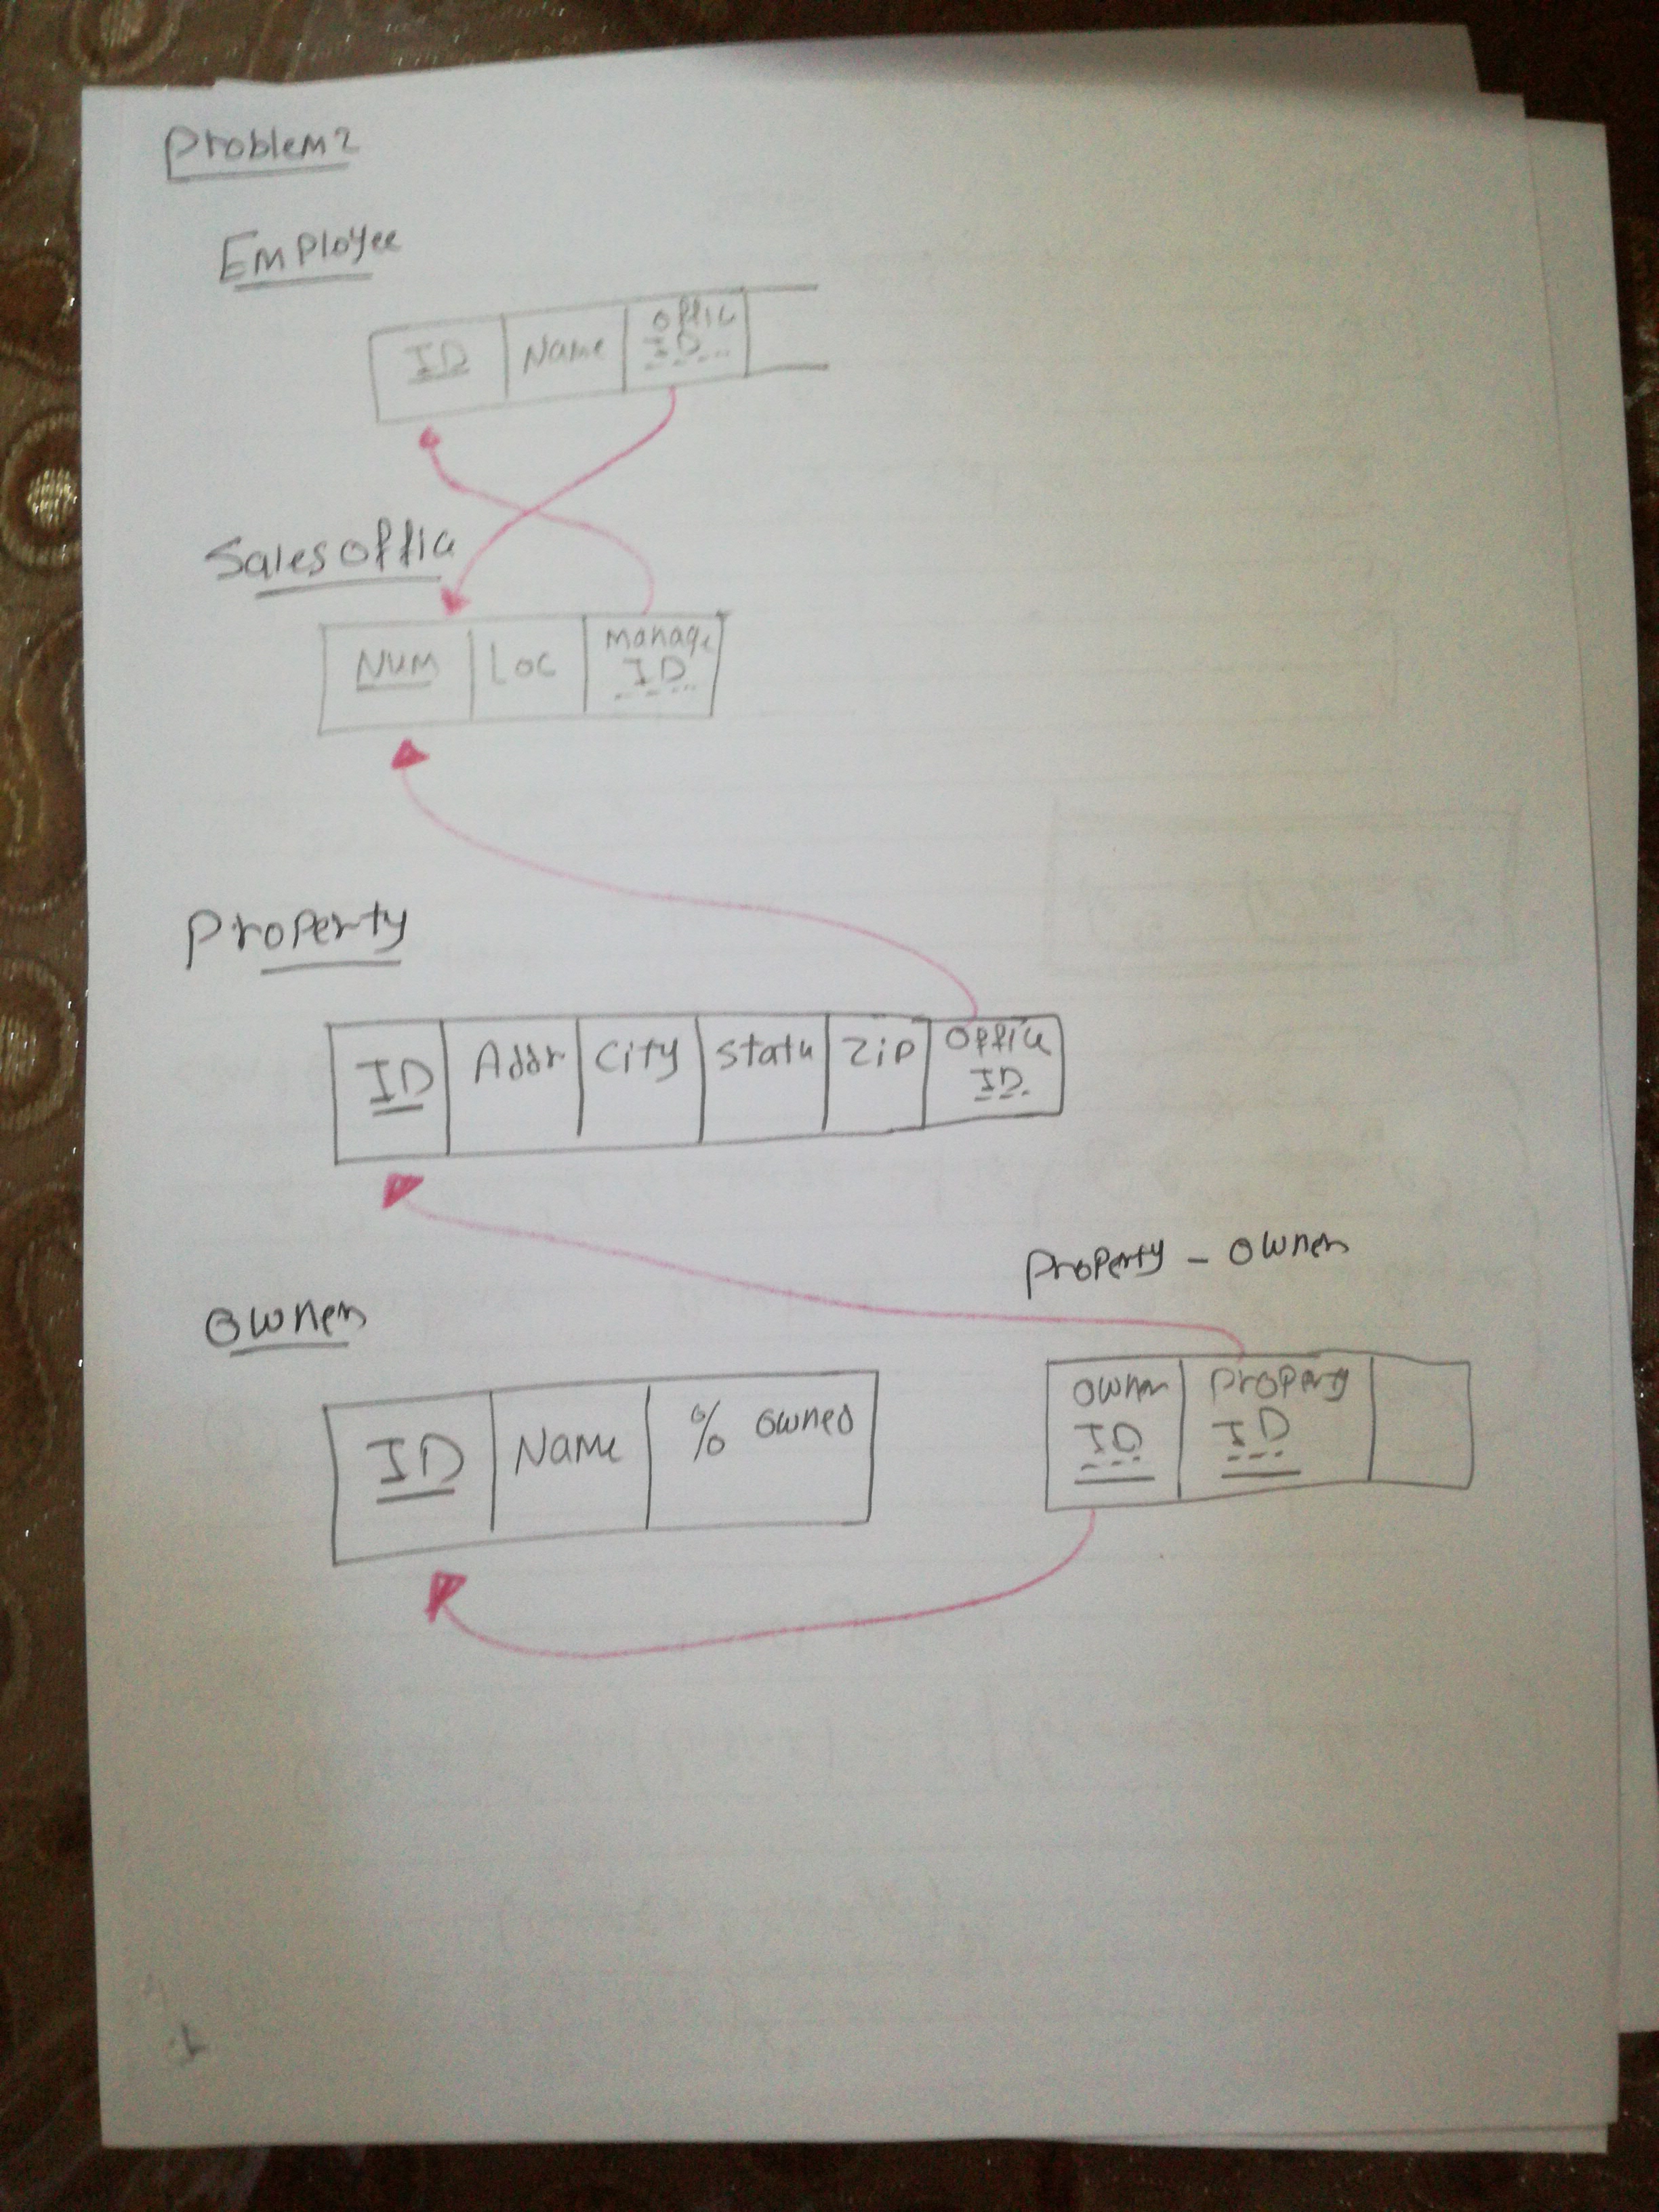 Problem2
Employee
ID Name offic ID
Sales offic
Num Loc manage ID
Property
ID Addr City State Zip Office ID
Property - owner
owner
ID Name % owned
owner ID Property ID